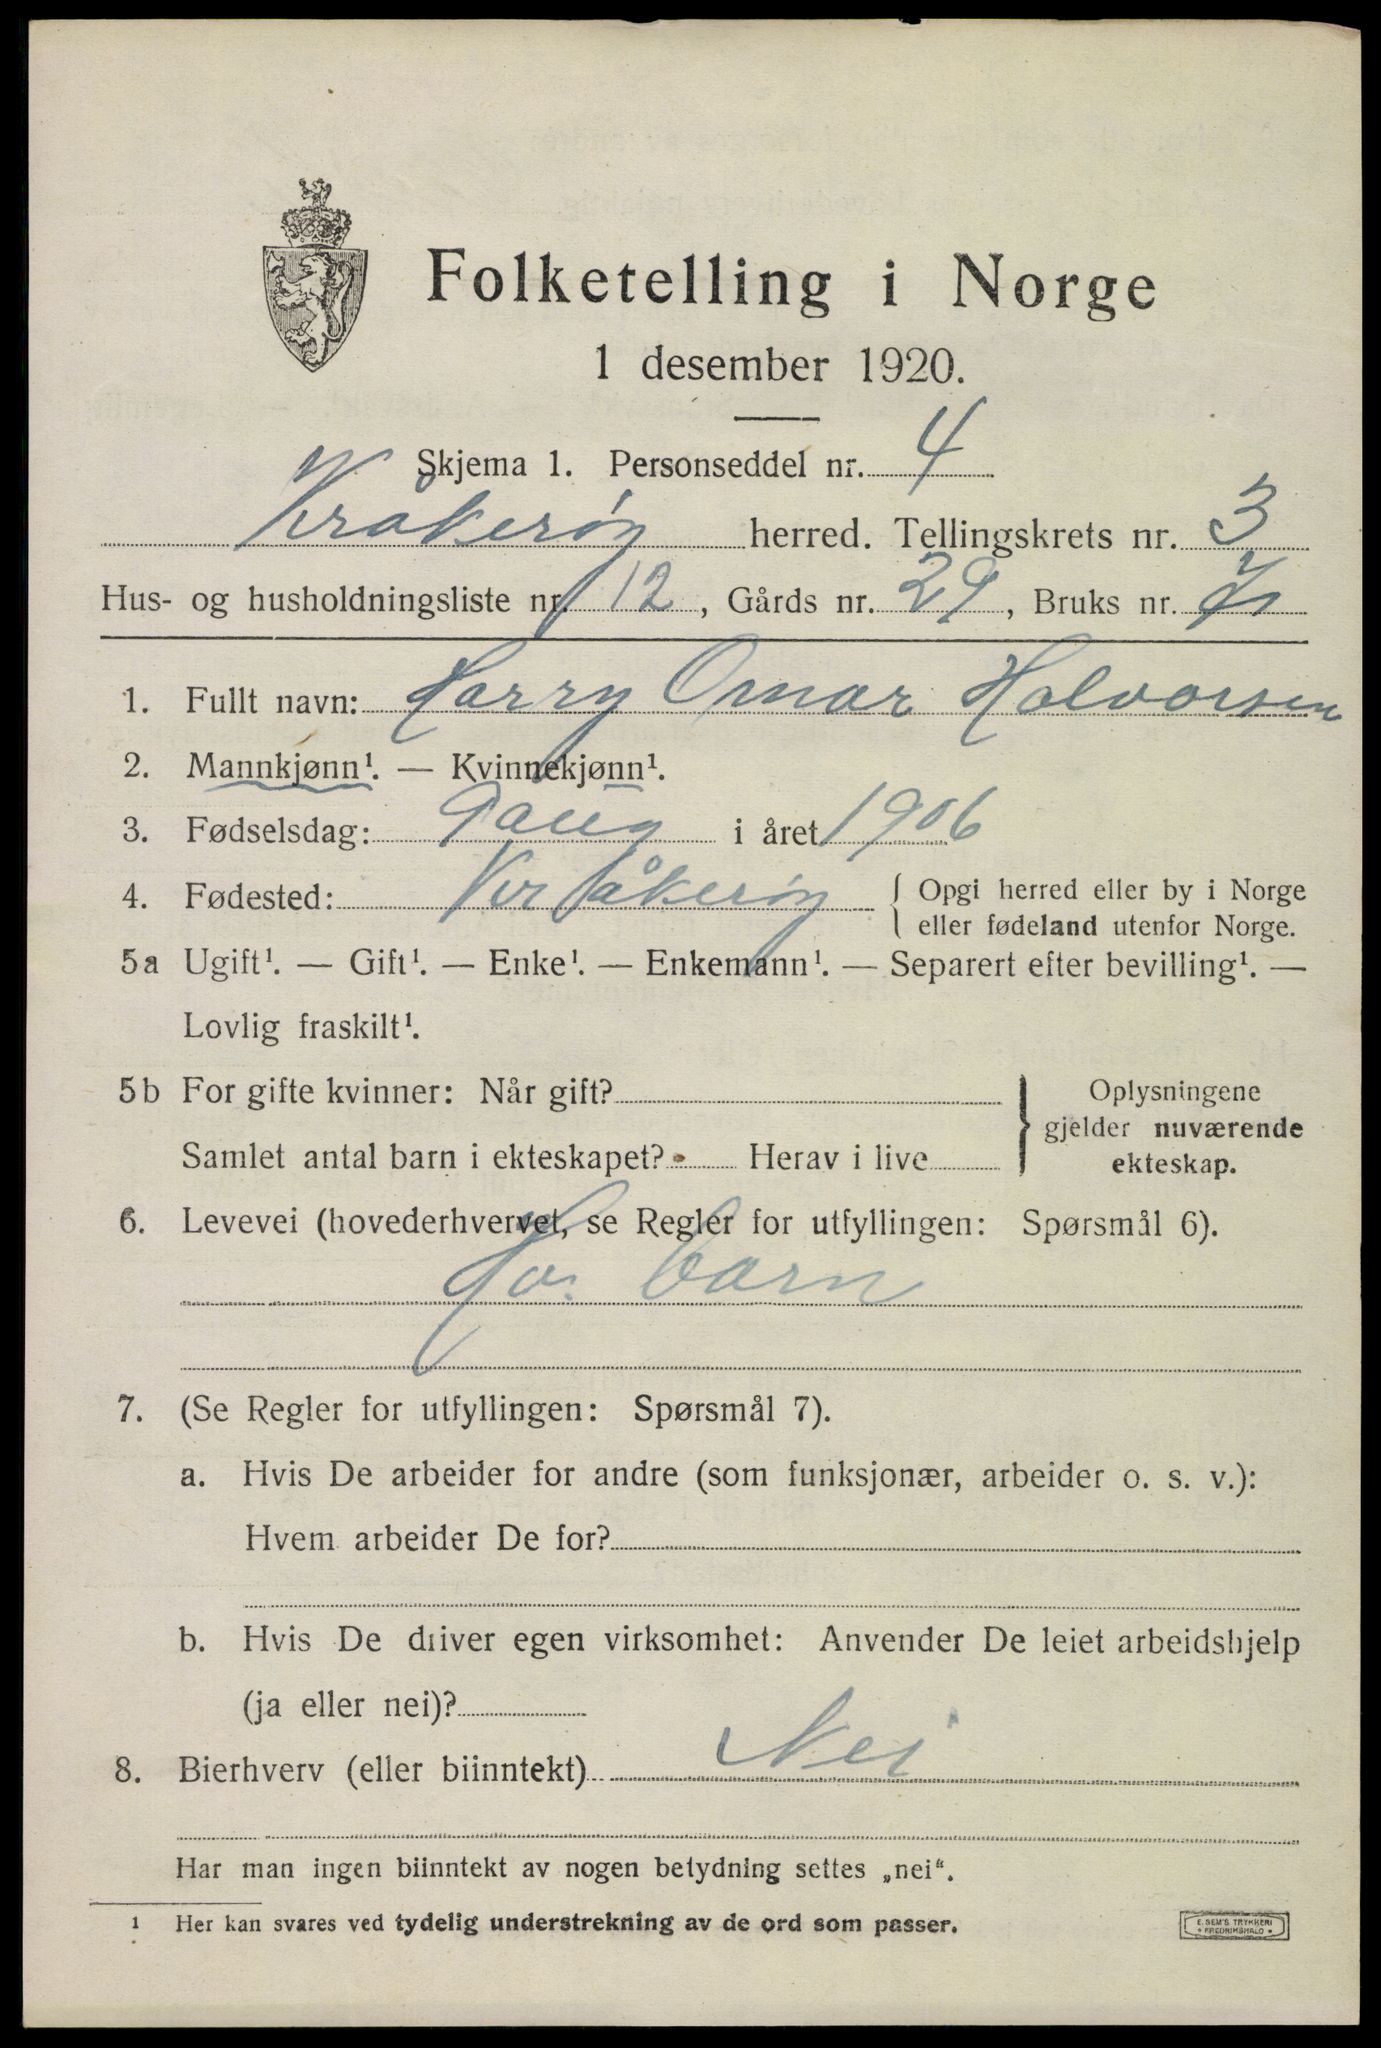 Folketelling i Norge
1 desember 1920.
Skjema 1. Personseddel nr. 4
Kråkerøy herred. Tellingskrets nr. 3
Hus- og husholdningsliste nr. 12, Gårds nr. 29, Bruks nr.
1. Fullt navn: Harry Omar Halvorsen
2. Mannkjønn¹. — Kvinnekjønn¹.
3. Fødselsdag: i året 1906
4. Fødested: Kråkerøy { Opgi herred eller by i Norge
eller fødeland utenfor Norge.
5a Ugift¹. — Gift¹. — Enke¹. — Enkemann¹. — Separert efter bevilling¹. —
Lovlig fraskilt¹.
5b For gifte kvinner: Når gift? } Oplysningene
gjelder nuværende
Samlet antal barn i ekteskapet? Herav i live ekteskap.
6. Levevei (hovederhvervet, se Regler for utfyllingen: Spørsmål 6).
barn
7. (Se Regler for utfyllingen: Spørsmål 7).
a. Hvis De arbeider for andre (som funksjonær, arbeider o. s. v.):
Hvem arbeider De for?
b. Hvis De driver egen virksomhet: Anvender De leiet arbeidshjelp
(ja eller nei)?
8. Bierhverv (eller biinntekt) Nei
Har man ingen biinntekt av nogen betydning settes „nei“.
1 Her kan svares ved tydelig understrekning av de ord som passer.
E. SEM'S TRYKKERI
* FREDRIKSHALD *